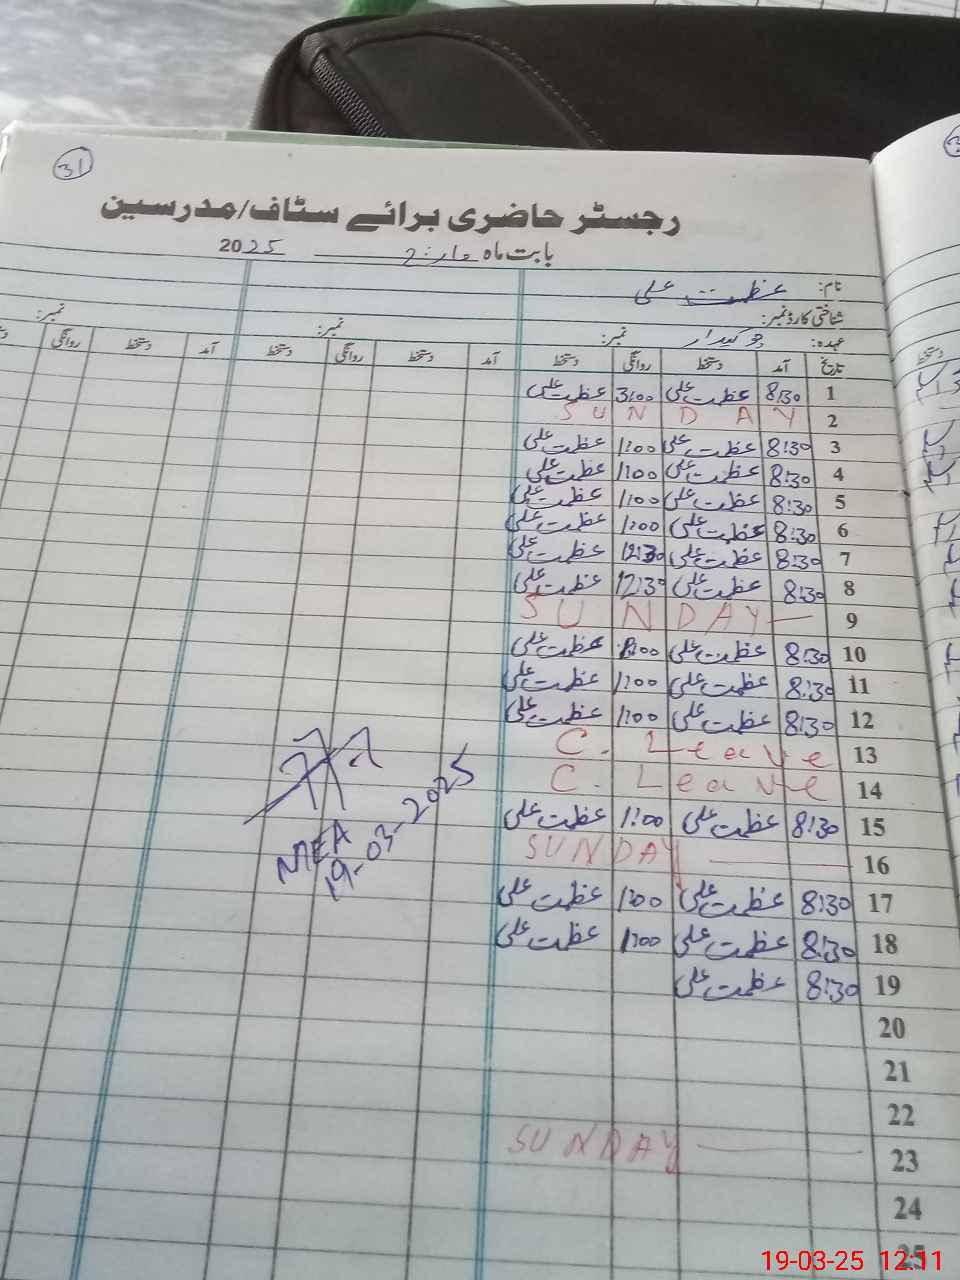 31
رجسٹر حاضری برائے سٹاف/مدرسین
بابت ماہ مارچ 2025
نام: عظمت علی
شناختی کارڈ نمبر:
عہدہ: چوکیدار نمبر: نمبر: نمبر:
تاریخ آمد دستخط روانگی دستخط آمد دستخط روانگی دستخط آمد دستخط روانگی
1 8:30 عظمت علی 3:00 عظمت علی
2 SUNDAY
3 8:30 عظمت علی 1:00 عظمت علی
4 8:30 عظمت علی 1:00 عظمت علی
5 8:30 عظمت علی 1:00 عظمت علی
6 8:30 عظمت علی 1:00 عظمت علی
7 8:30 عظمت علی 12:30 عظمت علی
8 8:30 عظمت علی 12:30 عظمت علی
9 SUNDAY
10 8:30 عظمت علی عظمت علی
11 8:30 عظمت علی 1:00 عظمت علی
12 8:30 عظمت علی 1:00 عظمت علی
13 C. Leave
14 C. Leave
15 8:30 عظمت علی 1:00 عظمت علی
16 SUNDAY
17 8:30 عظمت علی 1:00 عظمت علی
18 8:30 عظمت علی 1:00 عظمت علی
19 8:30 عظمت علی
20
21
22
23 SUNDAY
24
25
MEA
19-03-2025
19-03-25 12:11